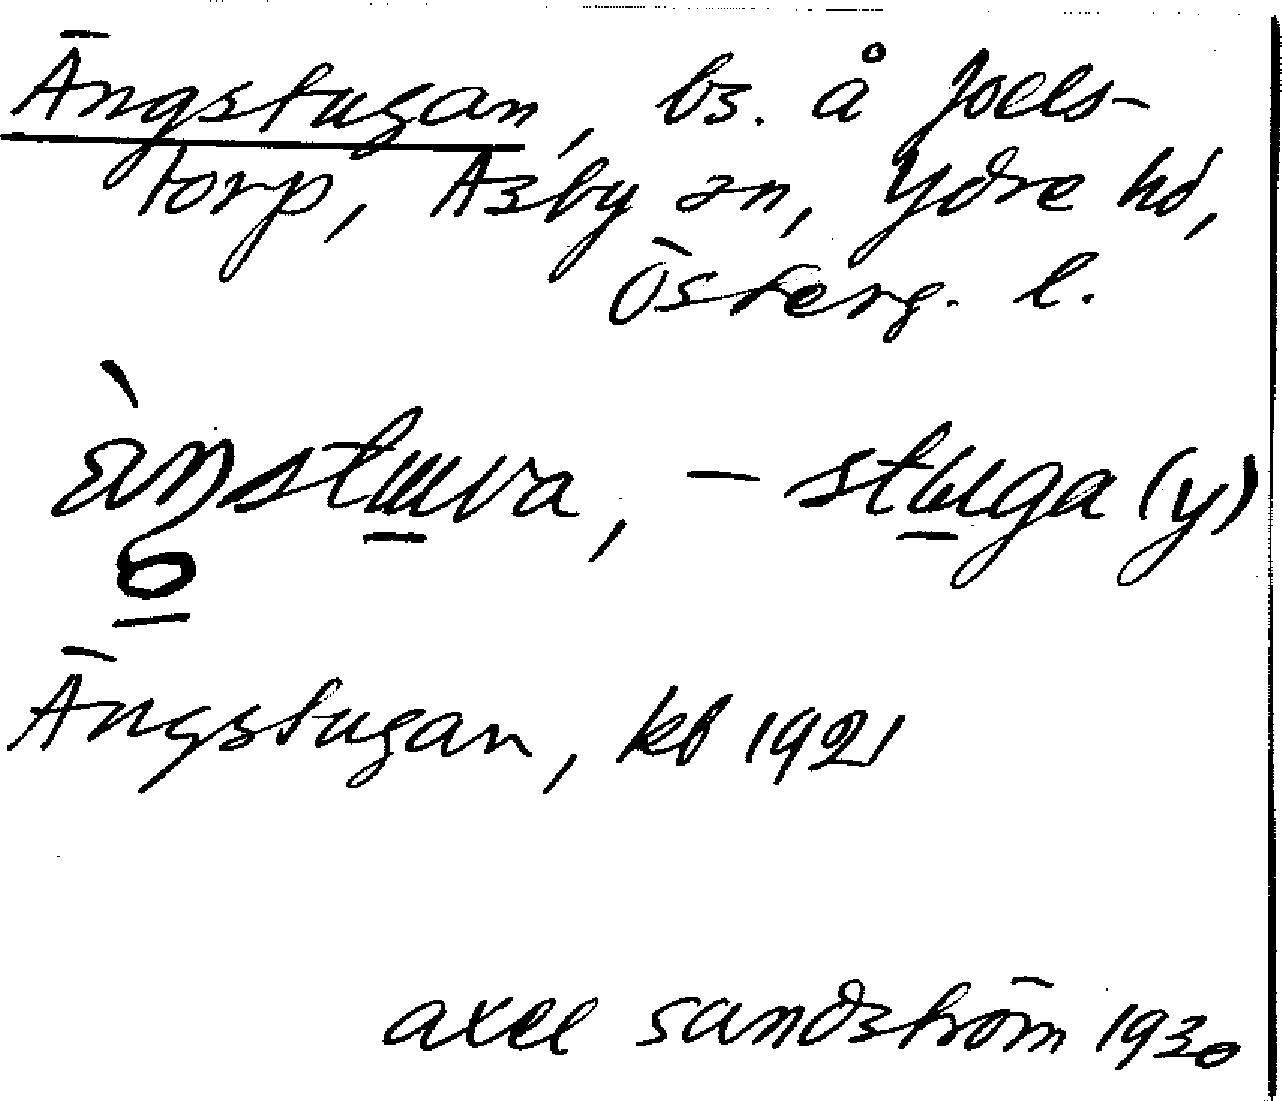 Ängstugan, bs. å Joels-
torp, Asby sn, Ydre hd,
Österg. l.
-stuga (y)
Ängstugan, kb 1921
axel sandström 1930